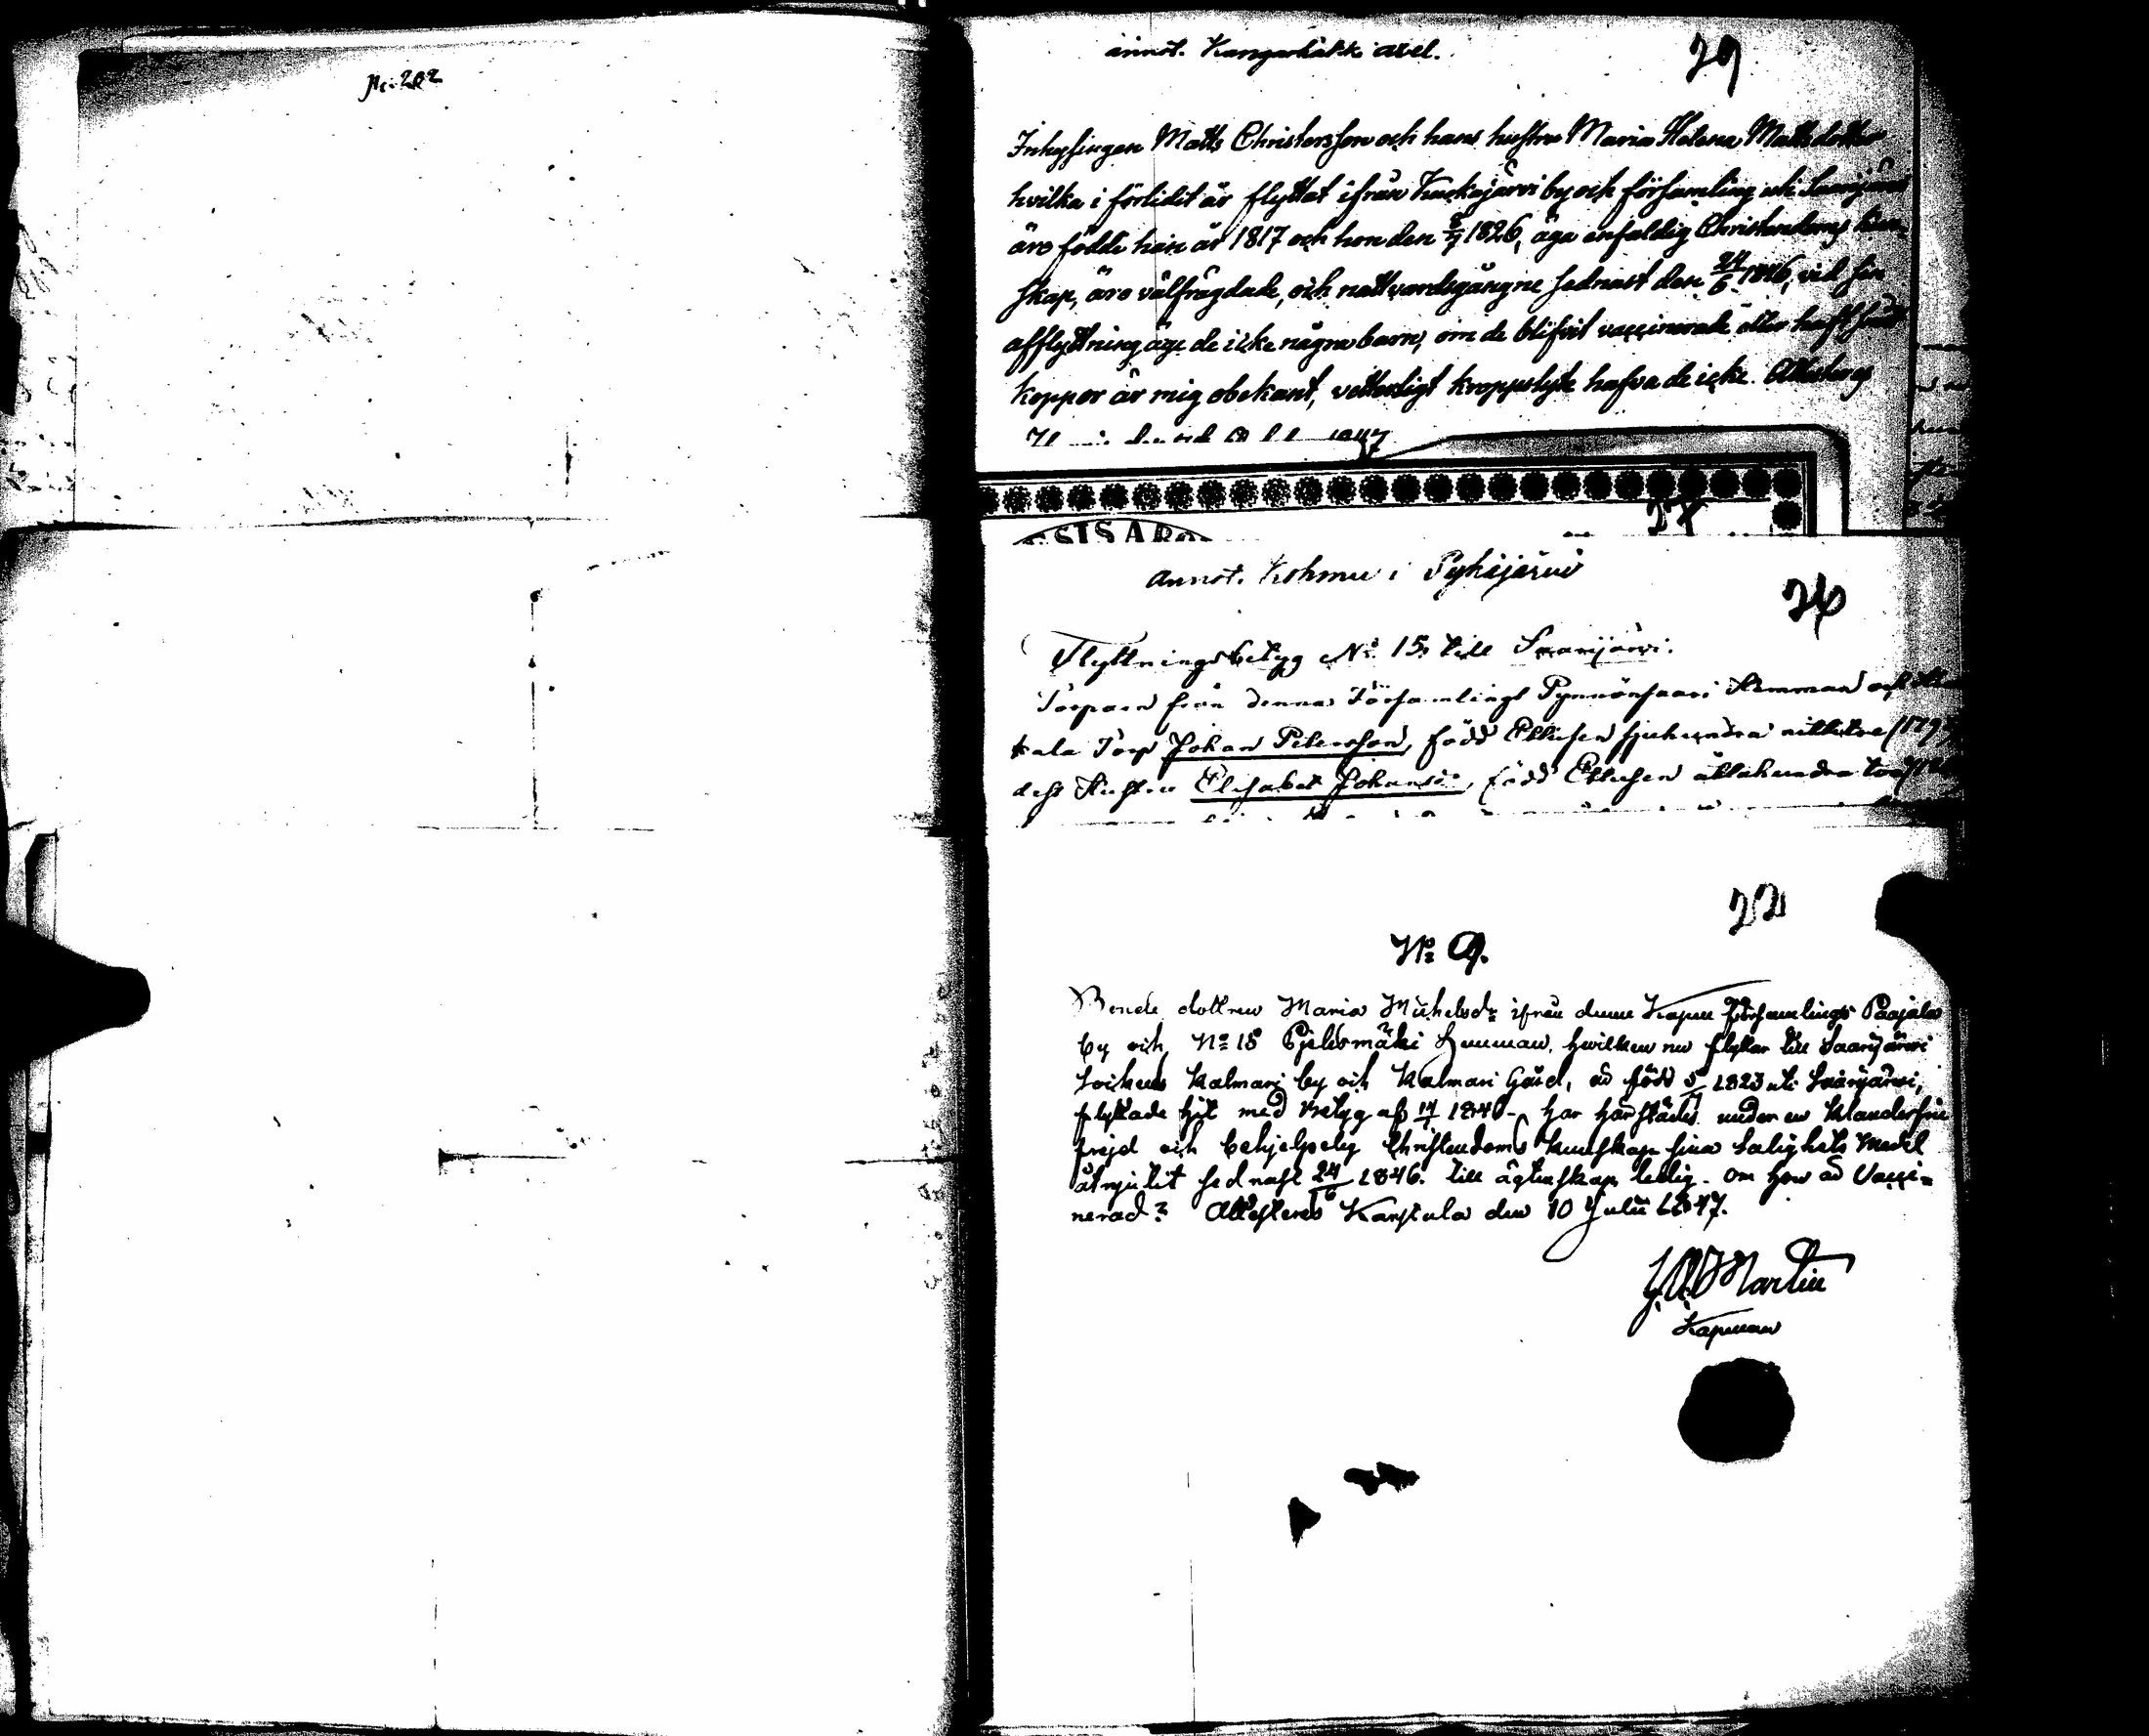 No 202
annot. Kangashäkk axel.
29
Inhysingen Matts Christersson och hans hustru Maria Helena Mattsdotter
hvilka i förlidit år flyttat ifrån by och församling uti Saarijärvi
äro födde han år 1817 och hon den 8/7 1826, äga enfaldig Christendoms kun-
skap, äro välfrägdade, och nattvardsgångne sednast den 24/6 1846, vid sin
afflyttning äga de icke några barn, om de blifvit vaccinerade eller haft
koppor är mig obekant, vetterligt kroppslyte hafva de icke. Attesteras
1847
27
annot. Kohmu i Pyhäjärvi
26
Flyttningsbetyg No 15. till Saarijärvi.
Torparn från denna Församlings Pynnönsaari Hemman och
kala Torp Johan Petersson, född Ettusen sjuhundra nittitre (179
dess Hustru Elisabet Johansd:r, född Ettusen åttahundra två
22
No 9.
Bonde dottren Maria Michelsd: ifrån denne Kapell församlings Paajala
by och No 18 Hemman, hwilken nu flyttar till Saarijärwi
Sockens Kalmari by och Kalmari Gård, är född 5/7 1823 uti Saarijärwi,
flyttade hit med betyg af 1840 - har härstädes under en klanderfri
frejd och behjelpelig Christendoms kunskap sina Salighets Medel
åtnjutit sednast 24/6 1846. till ägtenskap ledig. Om hon är Vacci=
nerad? Attesteras Karstula den 10 Julii 1847.
Martin
Kapellan